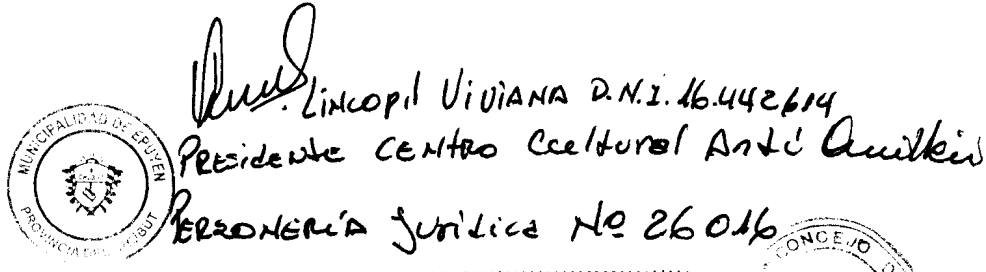 Lincopil Viviana D.N.I. 16.442614
Presidente Centro Cultural Antú Quillkin
Personería Jurídica Nº 26016
MUNICIPALIDAD DE EPUYEN
PROVINCIA DEL CHUBUT
CONCEJO